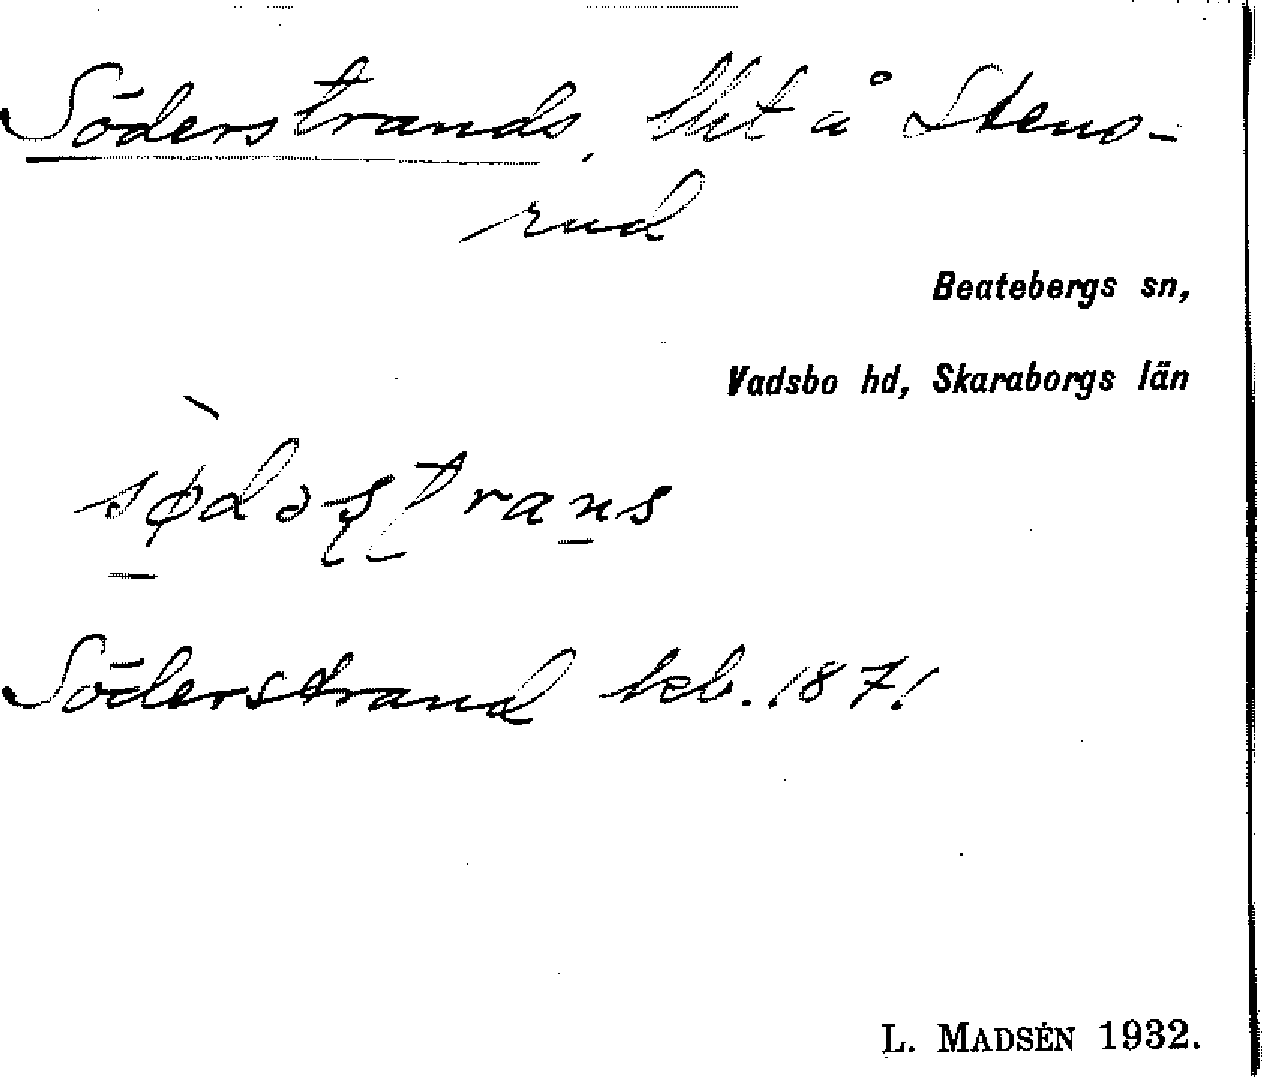 Söderstrands, lht å Stens-
rud
Beatebergs sn,
Vadsbo hd, Skaraborgs län
Söderstrand kb. 1871
L. MADSÉN 1932.